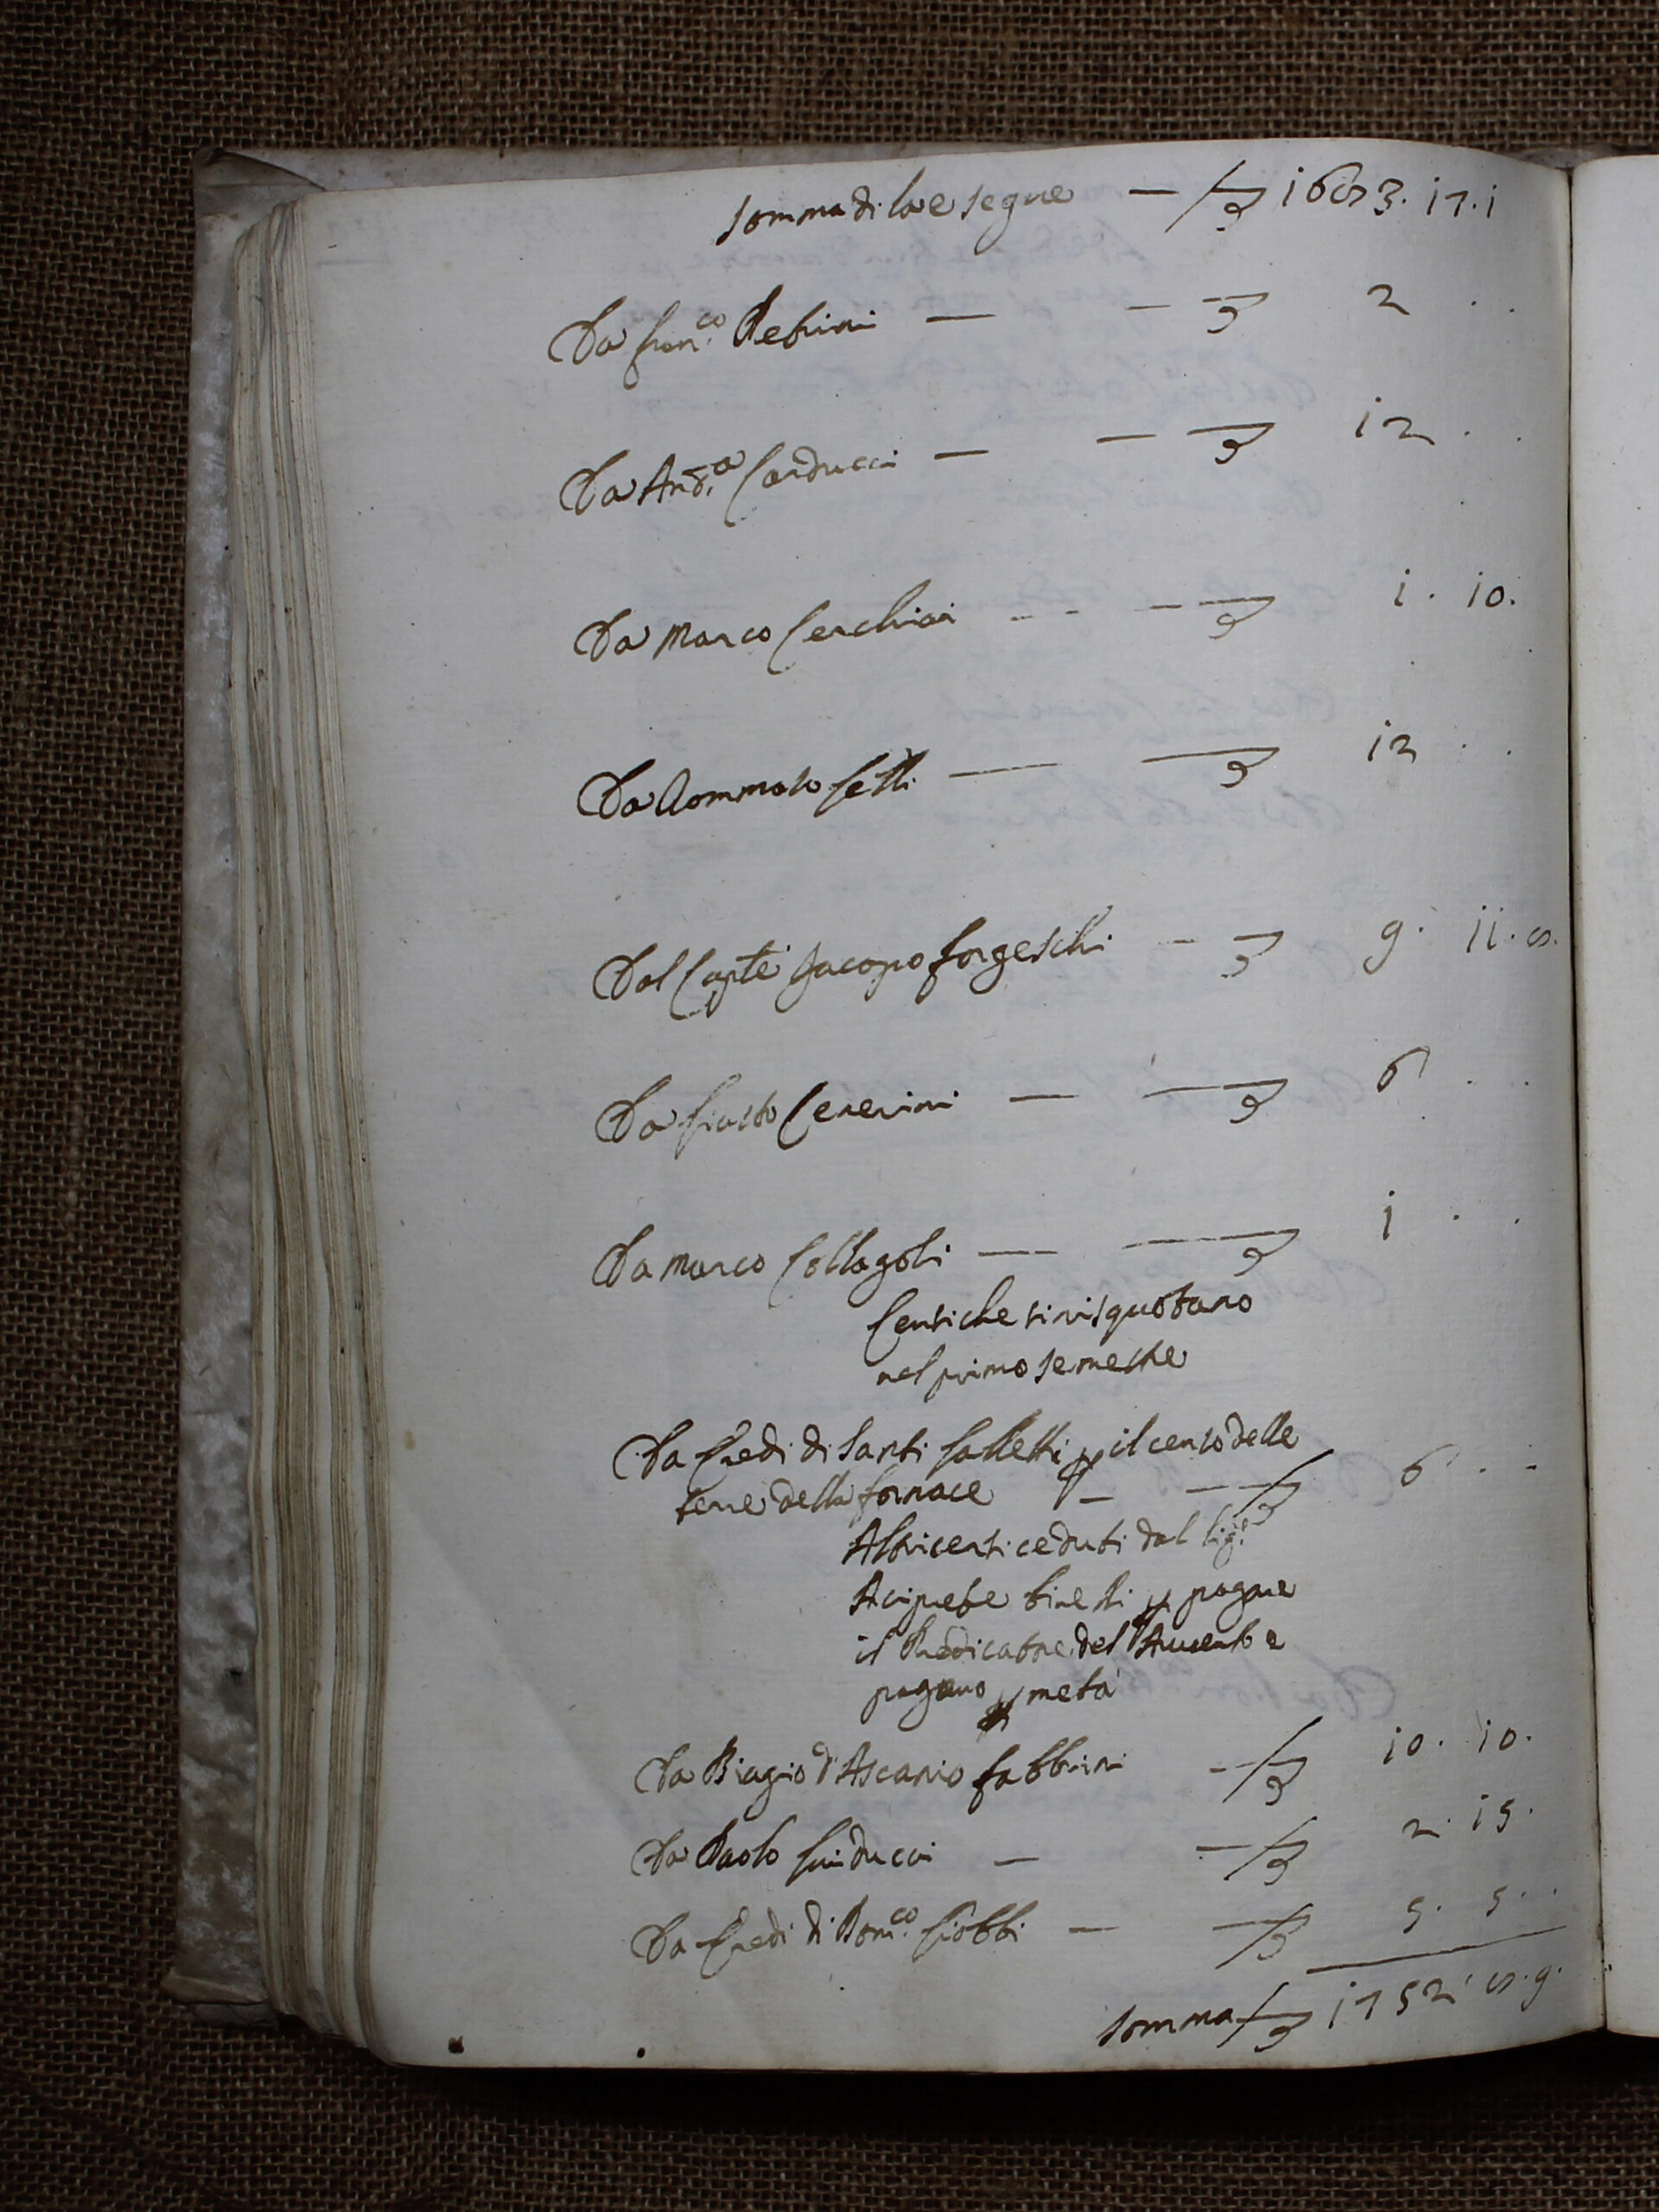 somma di la e segue — ₤ 1683. 17. 1
Da Fran.co Petrini — — ₤ 2 . .
Da And.a Carducci — — ₤ 12 . .
Da Marco Cerchiai - - — ₤ 1 . 10.
Da Tommaso Setti — — ₤ 12 . .
Dal Capte Jacopo Forgeschi — ₤ 9. 11. 8.
Da Giusto Cenerini — — ₤ 6 . .
Da Marco Collagoli — — ₤ 1 . .
Censi che si risquotano
nel primo semestre
Da Eredi di Santi Galletti p il censo delle
terre della fornace — — ₤ 6 . .
Altri censi ceduti dal Sig.e
Arciprete Binelli p pagare
il Predicatore del Avvento e
pagano p metà
Da Biagio d'Ascanio Fabbrini — ₤ 10. 10.
Da Paolo Guiducci — — ₤ 2. 15.
Da Eredi di Dom.co Giobbi — — ₤ 5. 5. .
somma ₤ 1752. 8. 9.